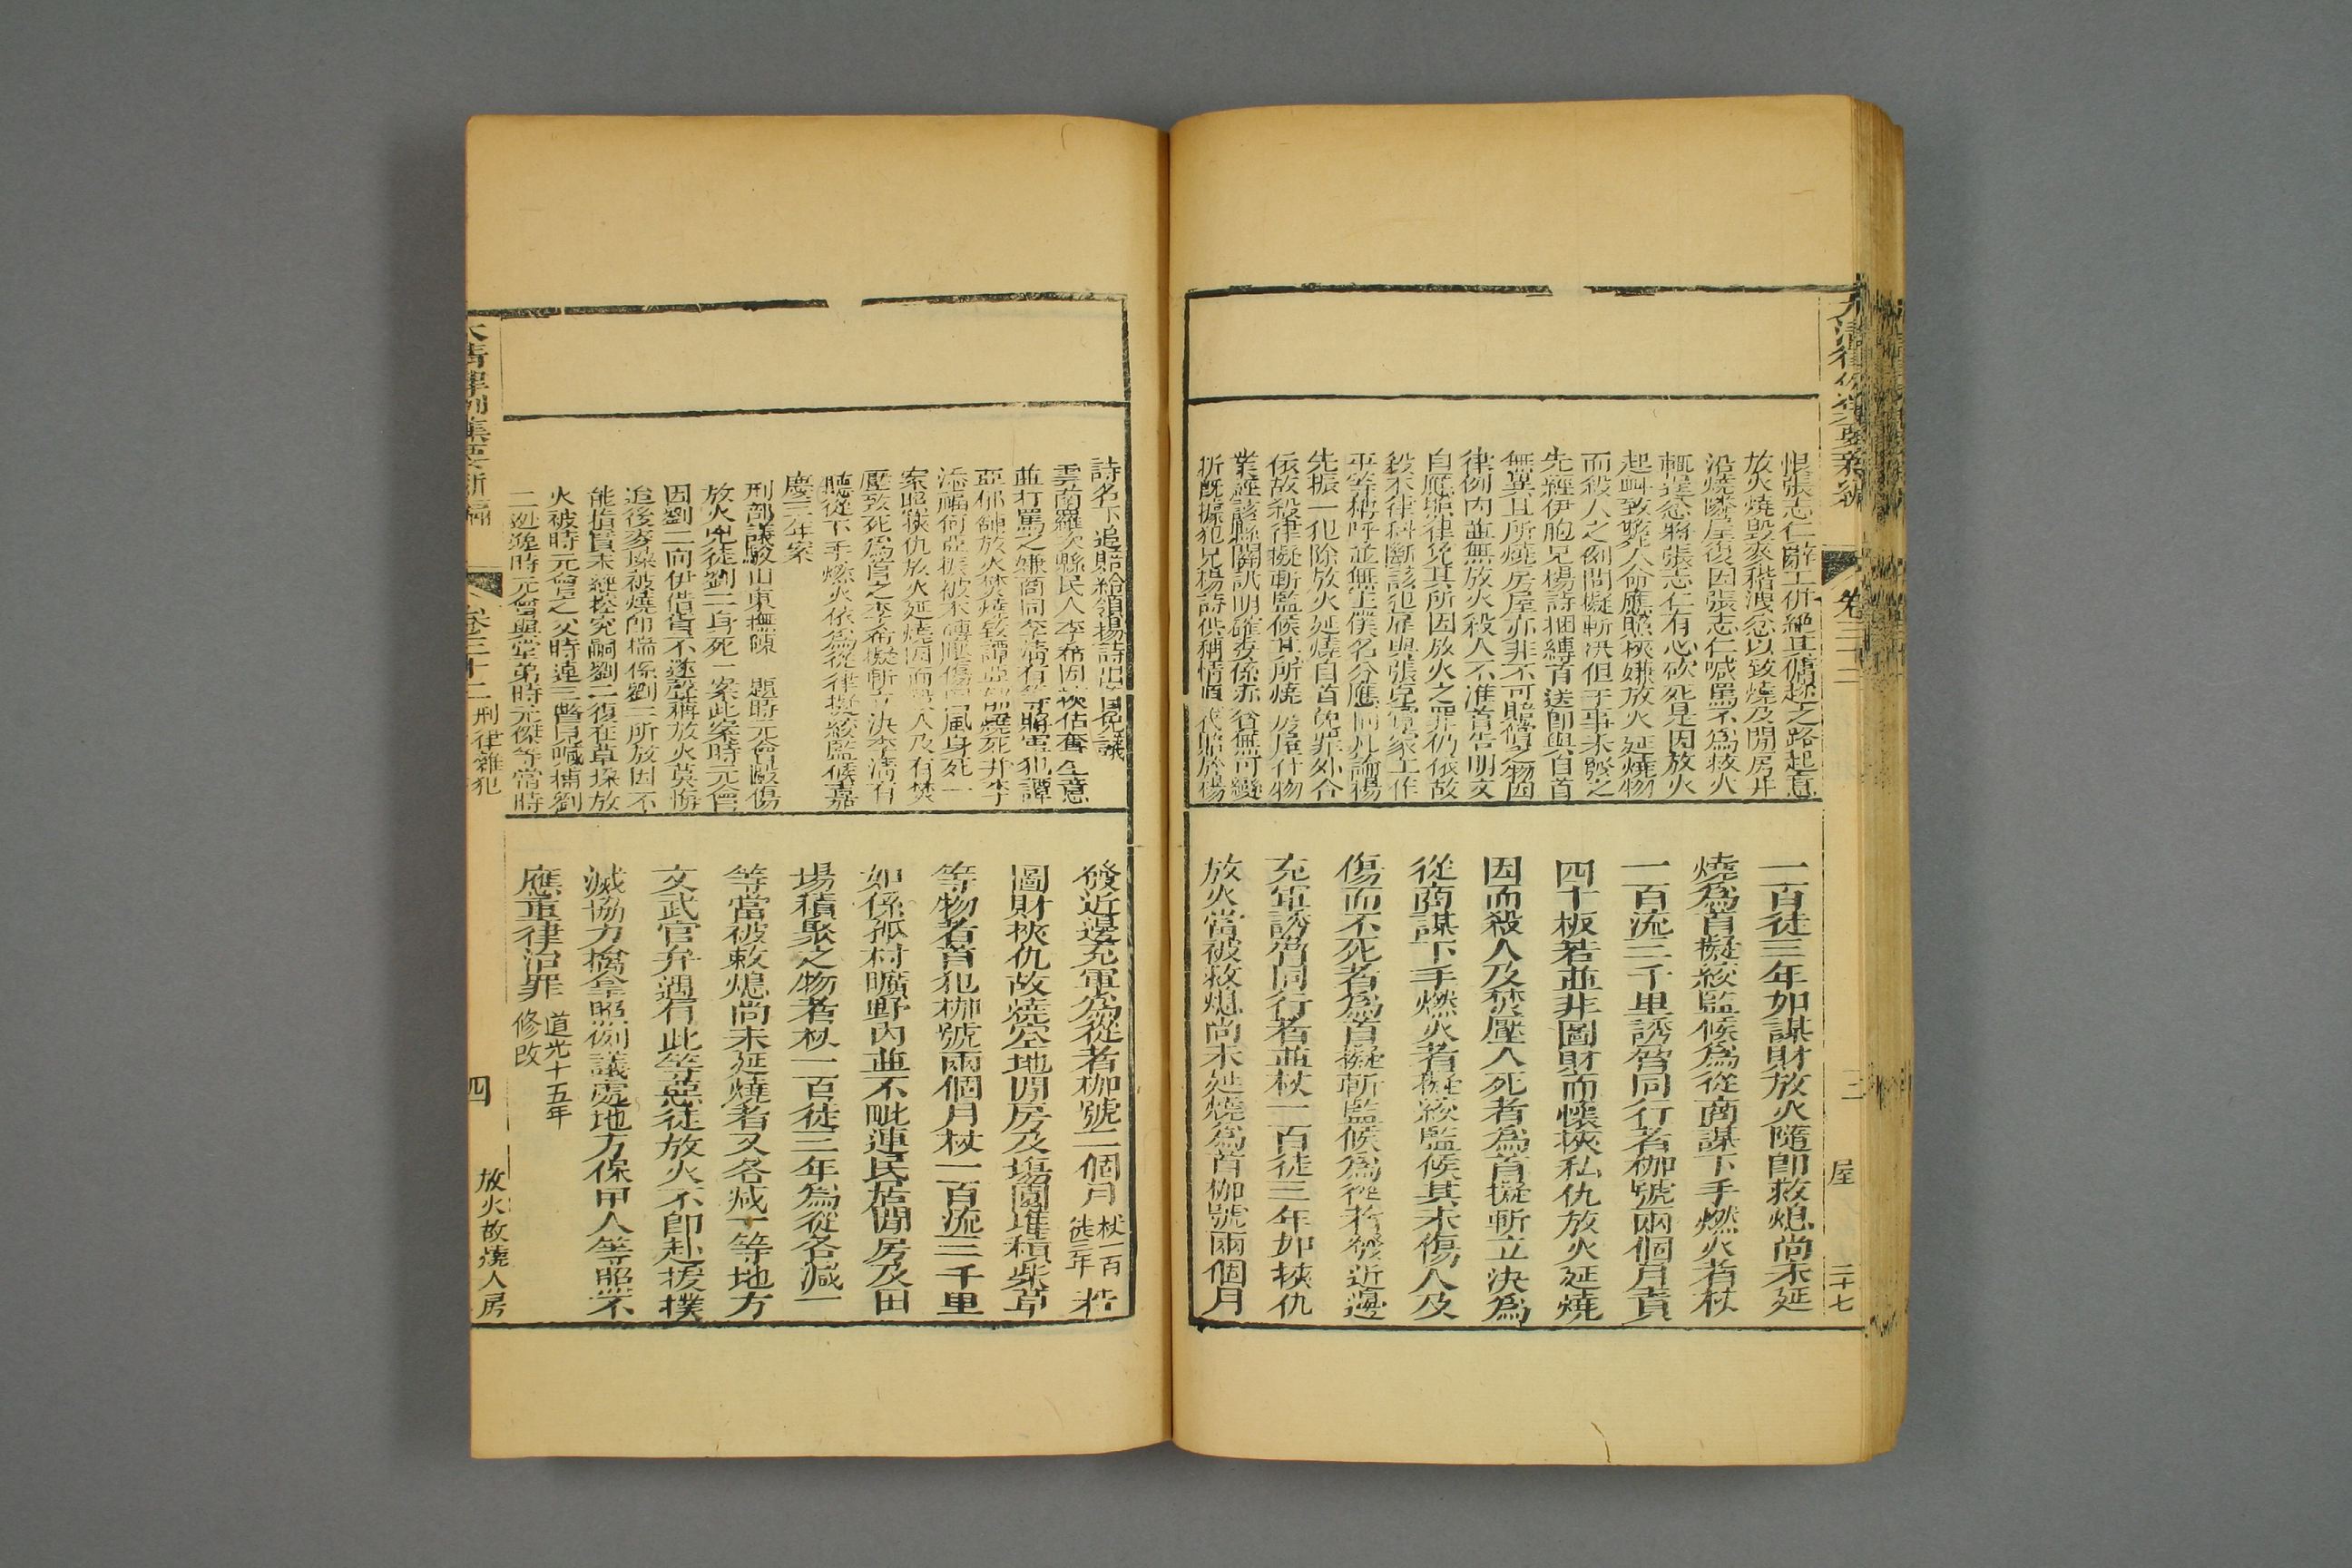 大清律例集要新編
卷三十二
三
屋
二十七
恨張志仁辭工斫絕其傭趁之路起意
放火燒毀麥稭洩忿以致燒及閒房并
沿燒隣屋復因張志仁喊罵不為救火
輒逞忿將張志仁有心砍死是因放火
起衅致斃人命應照挾嫌放火延燒物
而殺人之例問擬斬決但于事未發之
先經伊胞兄楊詩捆縛首送卽與自首
無異且所燒房屋亦非不可賠償之物因
律例内並無放火殺人不准首告明文
自應照律免其所因放火之罪仍依故
殺本律科斷該犯雇與張克寬家工作
平等稱呼並無主僕名分應同凡論楊
先振一犯除放火延燒自首免罪外合
依故殺律擬斬監候其所燒房屋什物
業經該縣關訊明確委係赤貧無可變
折旣據犯兄楊詩供稱情愿代賠於楊
一百徒三年如謀財放火隨卽救熄尚未延
燒爲首擬絞監候爲從商謀下手燃火者杖
一百流三千里誘脅同行者枷號兩個月責
四十板若並非圖財而懷挾私仇放火延燒
因而殺人及焚壓人死者爲首擬斬立決爲
從商謀下手燃火者擬絞監候其未傷人及
傷而不死者爲首擬斬監候爲從者發近邊
充軍誘脅同行者並杖一百徒三年如挾仇
放火當被救熄尚未延燒爲首枷號兩個月
詩名下追賠給領楊詩出首免議
雲南羅次縣民人李布因挾佔奪生意
並打罵之嫌商同李淸有等將軍犯譚
亞郁舖放火焚燒致譚亞郁燒死并李
添福何亞振被木磚壓傷因風身死一
案照挾仇放火延燒因而殺人及有焚
壓致死爲首之李布擬斬立決李淸有
聽從下手燃火依爲從律擬絞監候嘉
慶三年案
刑部議駁山東撫陳 題時元會毆傷
放火兇徒劉二身死一案此案時元會
因劉二向伊借貸不遂聲稱放火莫悔
追後麥垛被燒卽揣係劉二所放因不
能指實未經控究嗣劉二復在草垛放
火被時元會之父時連三瞥見喊捕劉
二迯逸時元會與堂弟時元傑等當時
發近邊充軍爲從者枷號二個月杖一百徒三年若
圖財挾仇故燒空地閒房及場園堆積柴草
等物者首犯枷號兩個月杖一百流三千里
如係孤村曠野内並不毗連民居閒房及田
場積聚之物者杖一百徒三年爲從各減一
等當被救熄尚未延燒者又各減一等地方
文武官弁遇有此等惡徒放火不卽赴援撲
滅協力擒拿照例議處地方保甲人等照不
應重律治罪道光十五年修改
大淸律例集要新編
卷三十二
刑律雜犯
四
放火故燒人房